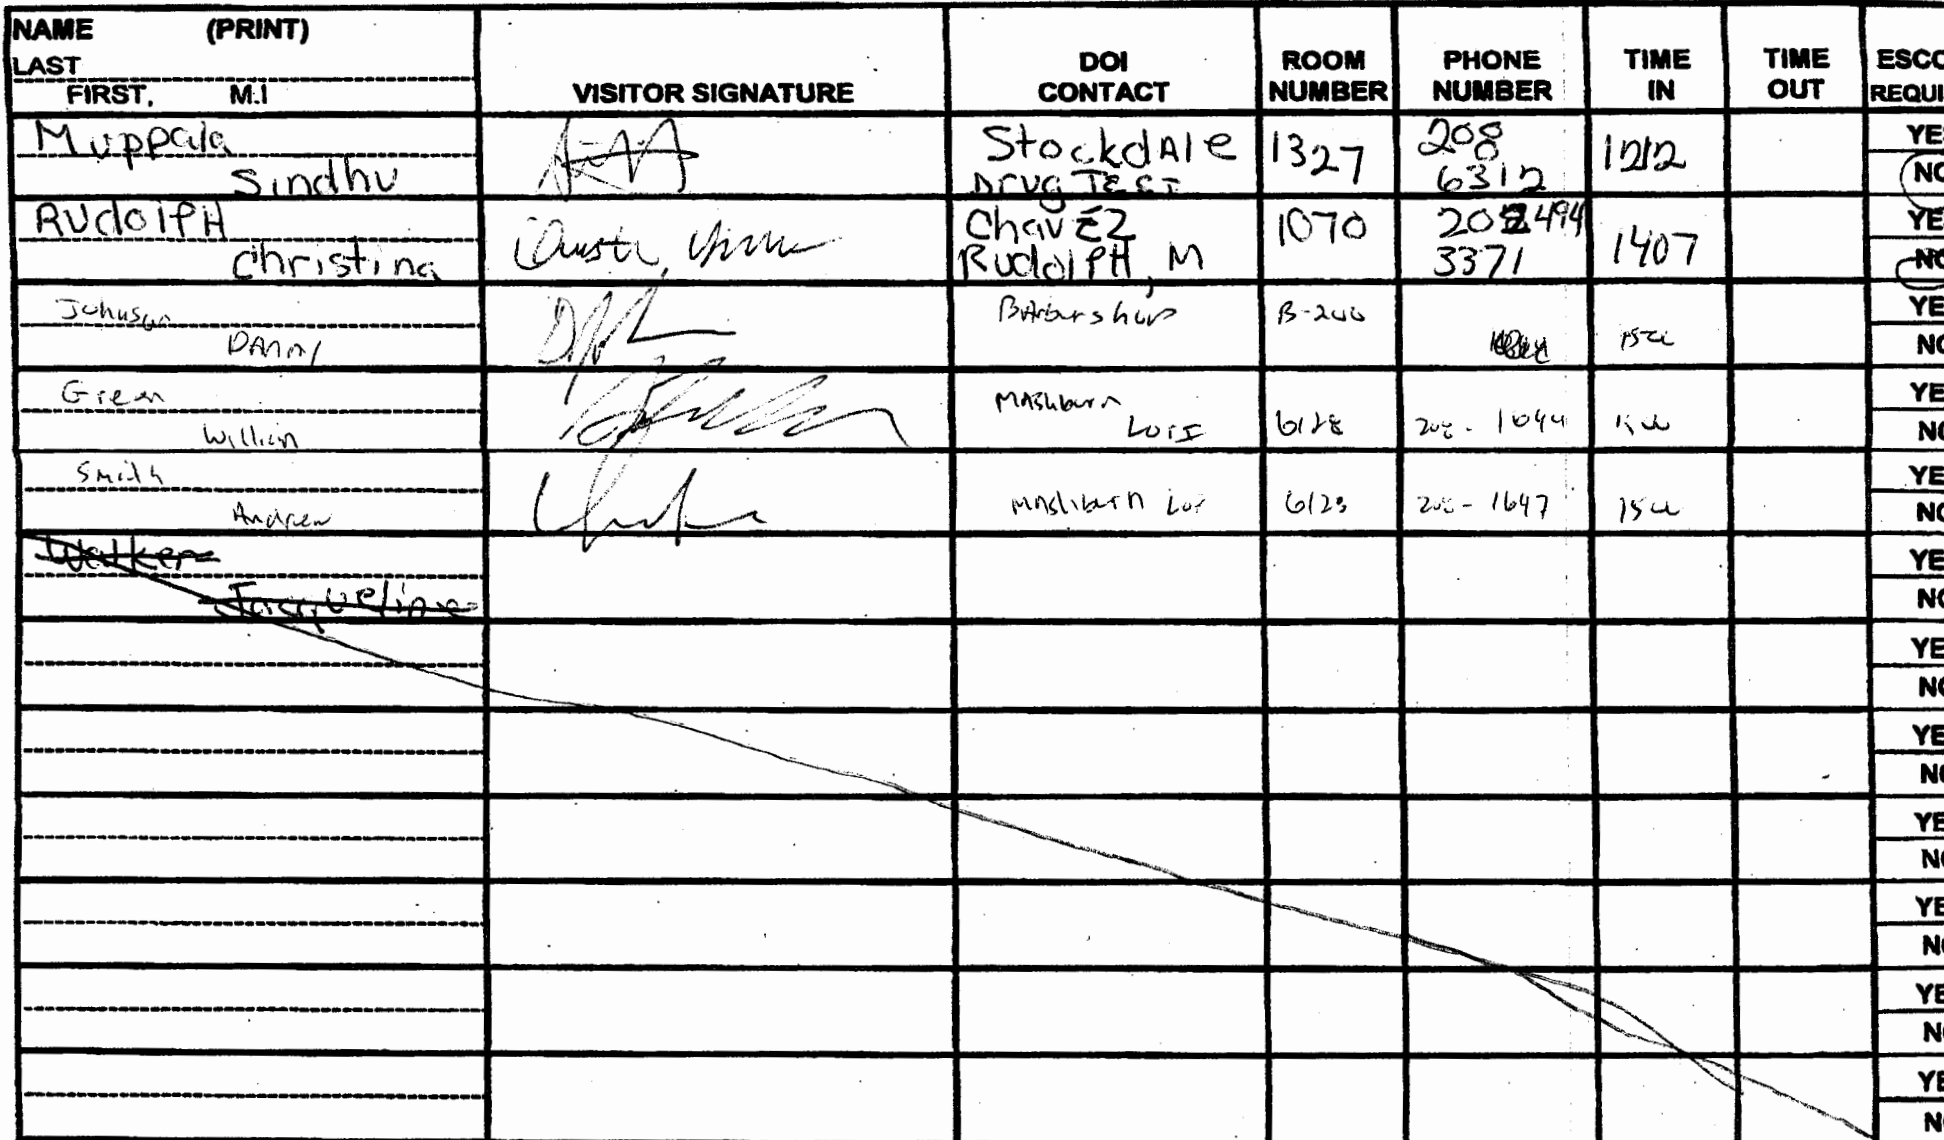 NAME (PRINT)
LAST
FIRST, M.I
VISITOR SIGNATURE
DOI CONTACT
ROOM NUMBER
PHONE NUMBER
TIME IN
TIME OUT
ESCO
REQUI
Muppala
Sindhu
Stockdale
Drug TEST
1327
208
6312
1212
YES
NO
RUdolPH
christina
ChavEZ
RudolPH, M
1070
494
3371
1407
YE
NO
Johnson
DANNY
Barbershop
B-200
YE
NO
Green
William
Mashburn
Lori
208-1044
YE
NO
Smith
Andrew
Mashburn
6123
208-1647
YE
NO
Walker
Jacqueline
YE
NO
YE
NO
YE
NO
YE
NO
YE
NO
YE
NO
YE
NO